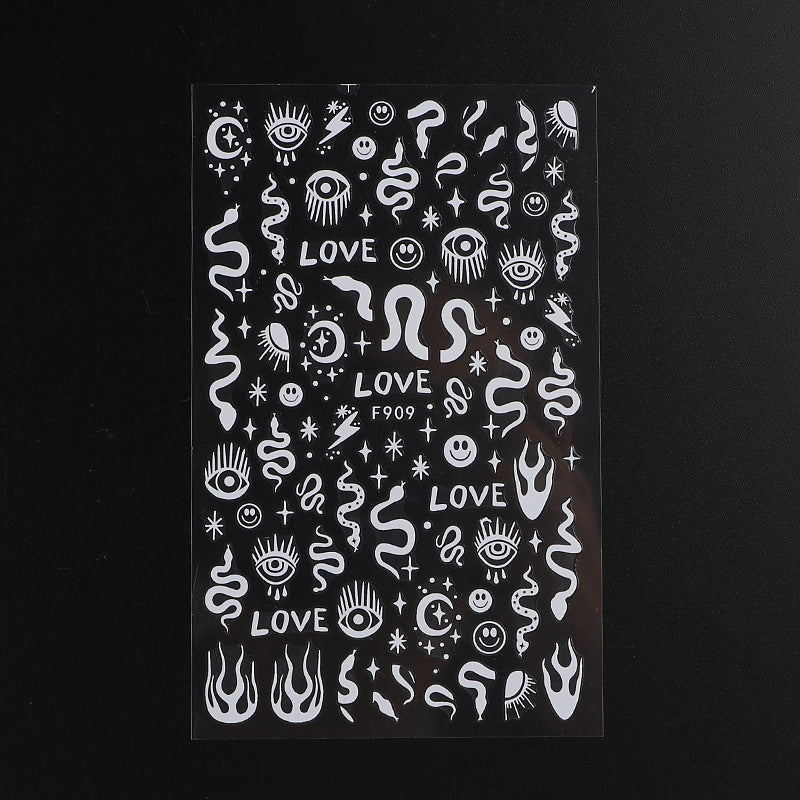 LOVE
LOVE
F909
LOVE
LOVE